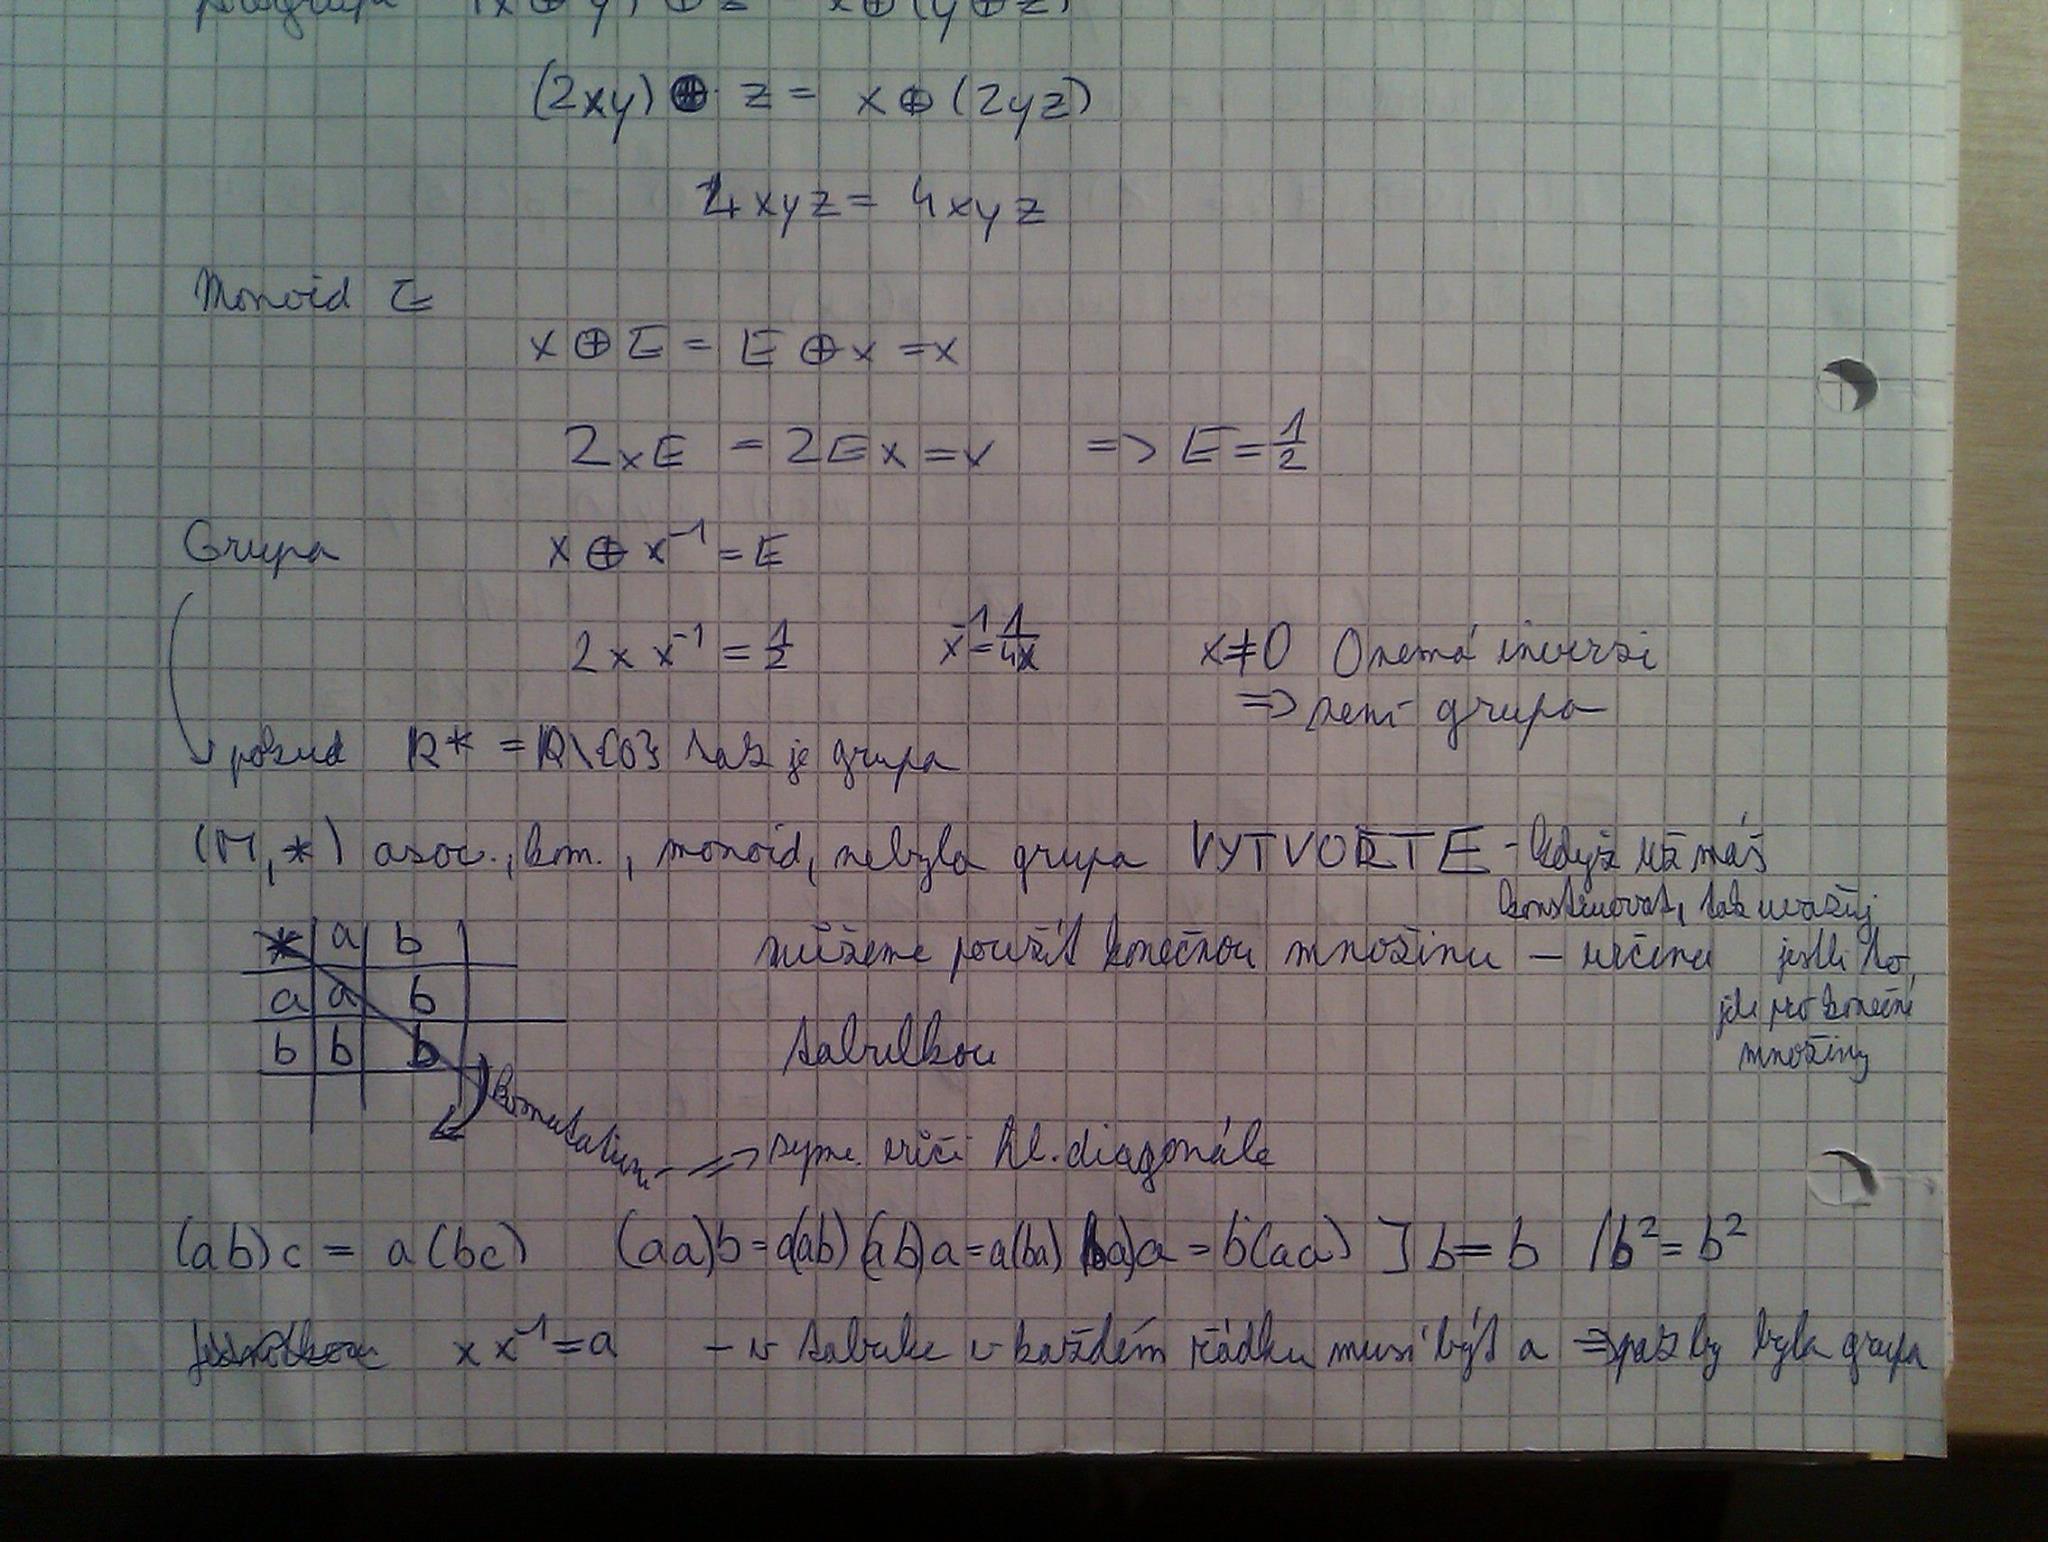 pologrupa (x⊕y)⊕z = x⊕(y⊕z)
(2xy)⊕ z = x⊕(2yz)
4xyz = 4xyz
Monoid E
x⊕E = E⊕x = x
2xE = 2Ex = x => E = 1/2
Grupa x⊕x⁻¹ = E
2x x⁻¹ = 1/2 x⁻¹ = 1/4x x≠0 0 nemá inverzi
=> není grupa
pokud R* = R\{0} tak je grupa
(M,*) asoc., kom., monoid, nebyla grupa VYTVOŘTE - když už máš
konstruovat, tak uvažuj
* a b můžeme použít konečnou množinu – určenu jestli to
a a b jde pro konečné
b b b tabulkou množiny
komutativní => syme. vůči hl. diagonále
(ab)c = a(bc) (aa)b = a(ab) (ab)a = a(ba) (ba)a = b(aa) ] b = b /b² = b²
x x⁻¹ = a – v tabulce v každém řádku musí být a => pak by byla grupa